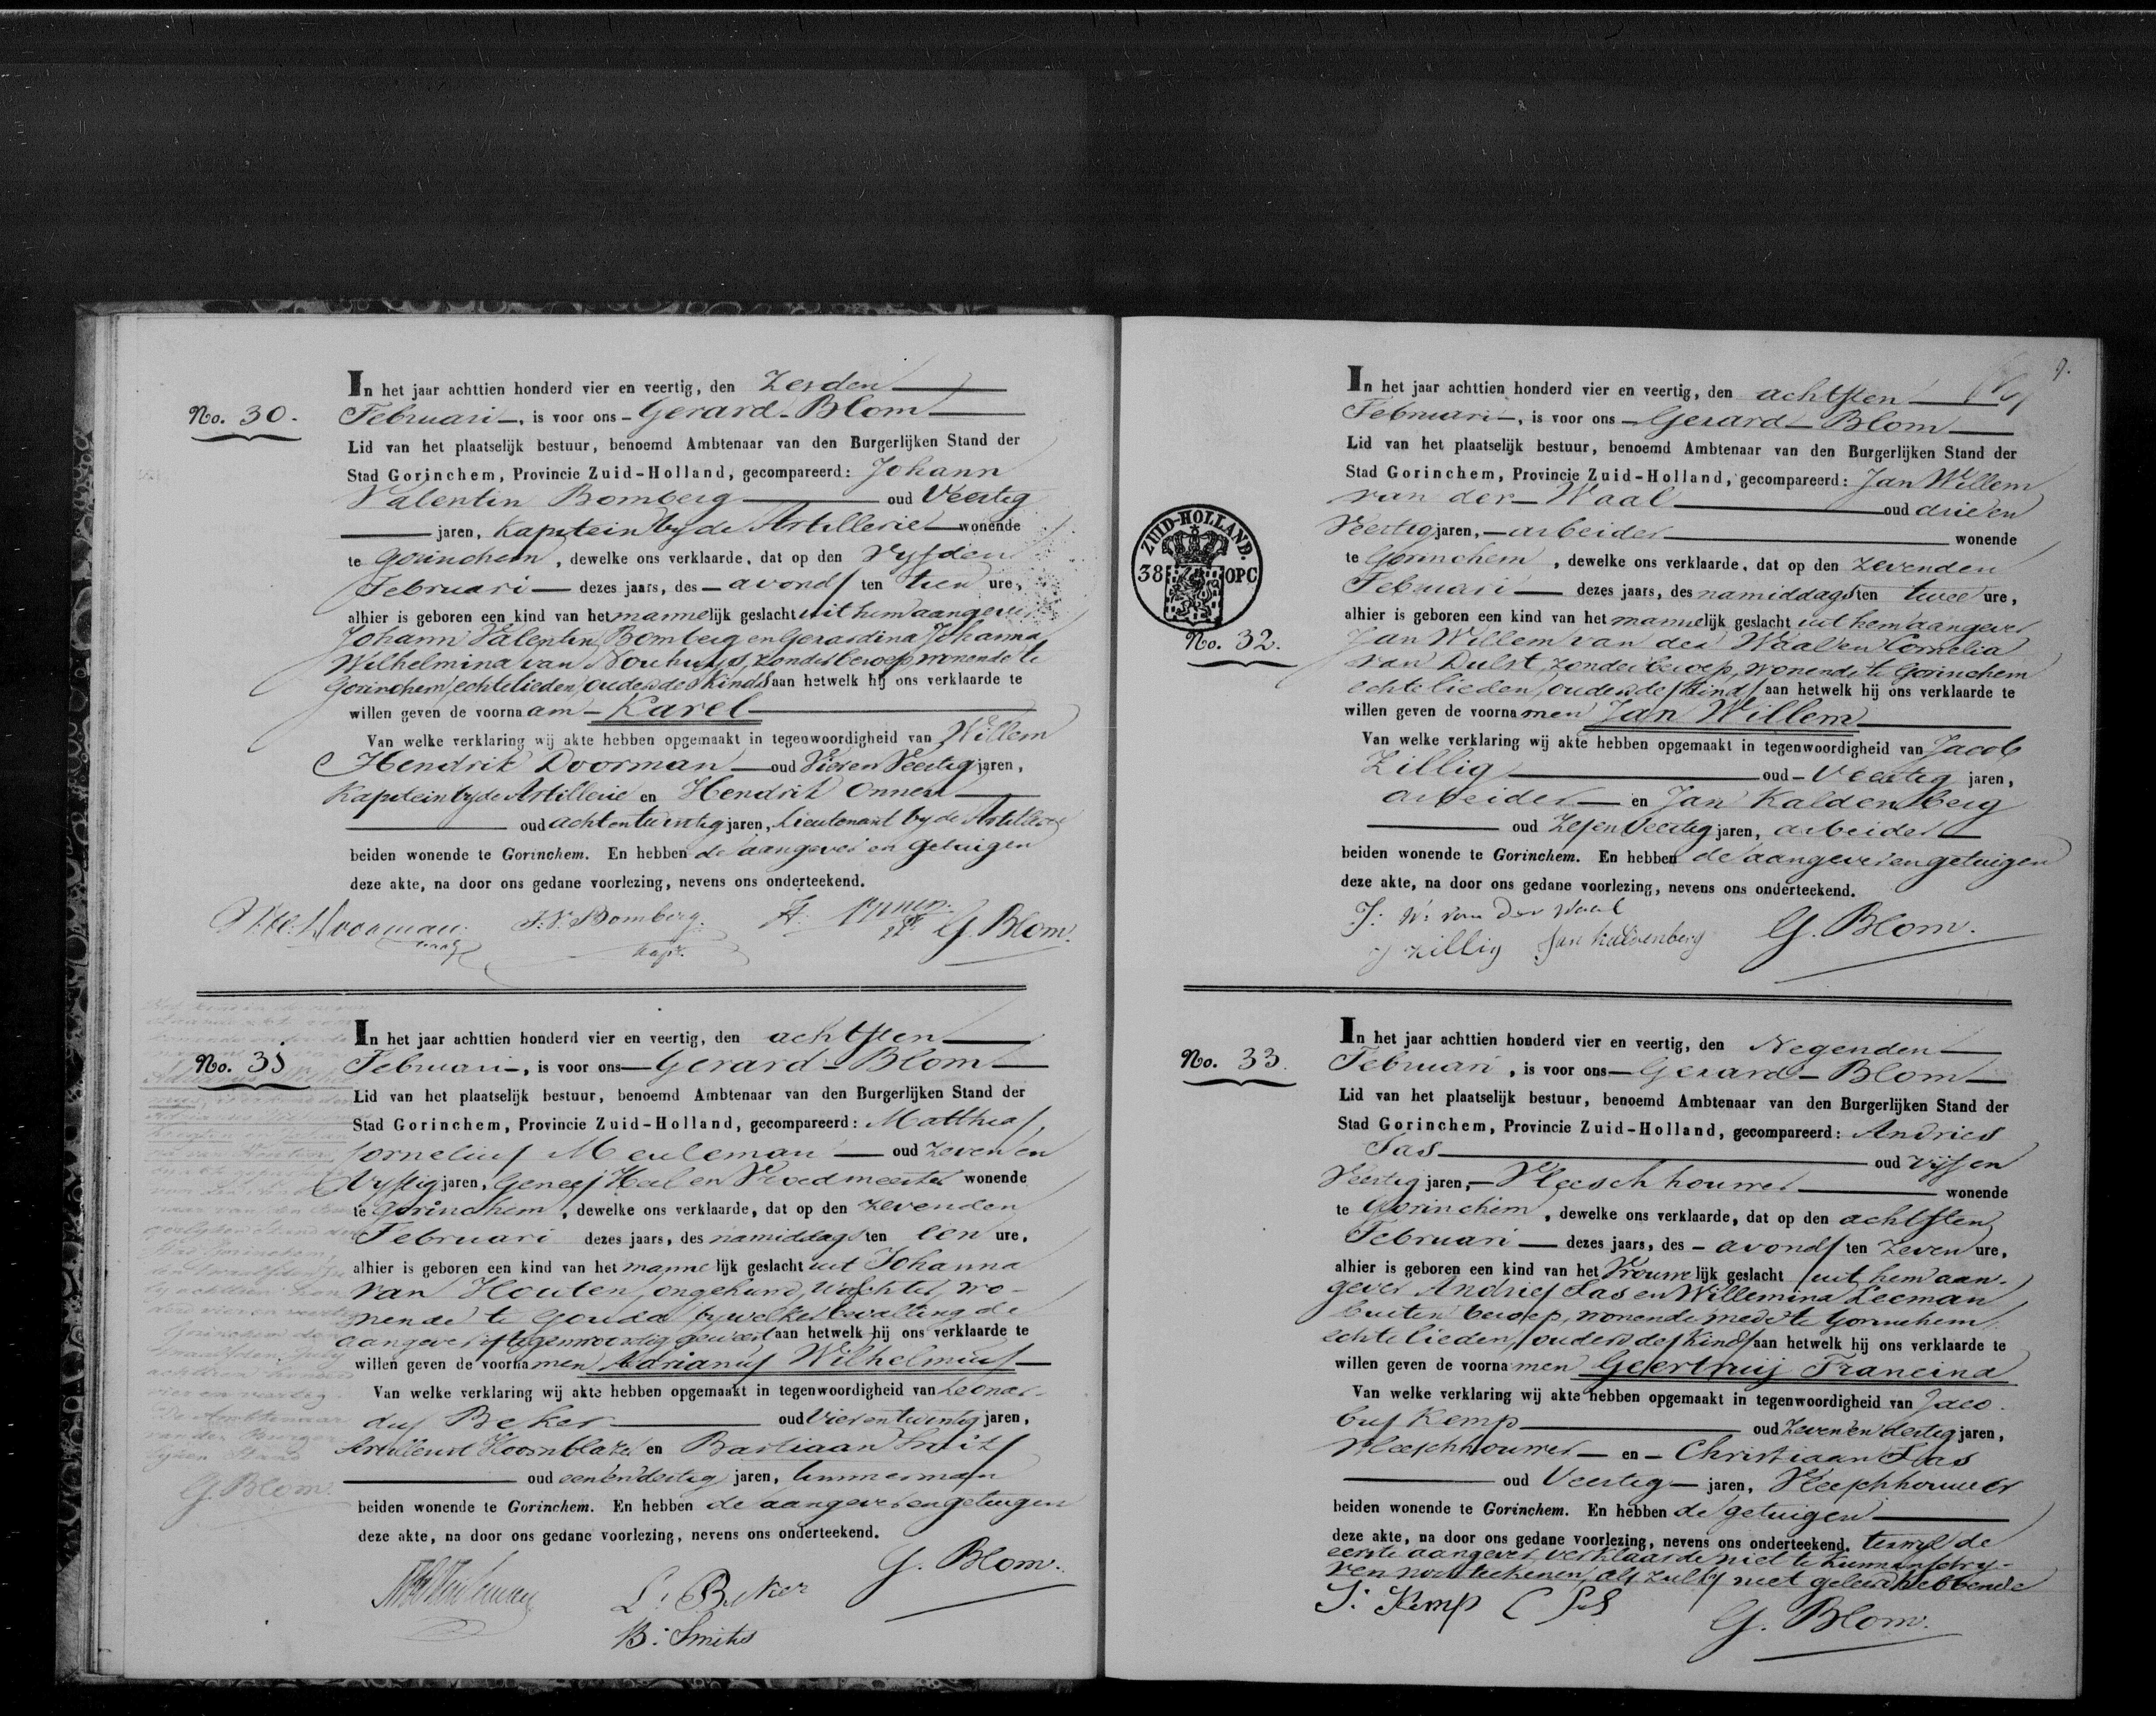 No. 30.
In het jaar achttien honderd vier en veertig, den Zesden
Februari, is voor ons Gerard Blom
Lid van het plaatselijk bestuur, benoemd Ambtenaar van den Burgerlijken Stand der
Stad Gorinchem, Provincie Zuid-Holland, gecompareerd: Johann
Valentin Bomberg oud Veertig
jaren, Kapitein by de Artillerie wonende
te Gorinchem, dewelke ons verklaarde, dat op den Vyfden
Februari dezes jaars, des avonds ten tien ure,
alhier is geboren een kind van het mannelijk geslacht uit hem aangever
Johann Valentin Bomberg en Gerardina Johanna
Wilhelmina van Nouhuys, zonder beroep wonende te
Gorinchem, echtelieden, ouders des Kinds aan hetwelk hij ons verklaarde te
willen geven de voornaam Karel
Van welke verklaring wij akte hebben opgemaakt in tegenwoordigheid van Willem
Hendrik Doorman oud Vier en Veertig jaren,
Kapitein by de Artillerie en Hendrik Onnen
oud acht en twintig jaren, Lieutenant by de Artillerie
beiden wonende te Gorinchem. En hebben de aangever en getuigen
deze akte, na door ons gedane voorlezing, nevens ons onderteekend.
Doorman J. V. Bomberg. H. Onnen. G. Blom.
Kapt.
No. 31
In het jaar achttien honderd vier en veertig, den achtsten
Februari, is voor ons Gerard Blom
Lid van het plaatselijk bestuur, benoemd Ambtenaar van den Burgerlijken Stand der
Stad Gorinchem, Provincie Zuid-Holland, gecompareerd: Matthias
Cornelius Meuleman oud Zeven en
Vyftig jaren, Genees Heel en Vroedmeester wonende
te Gorinchem, dewelke ons verklaarde, dat op den Zevenden
Februari dezes jaars, des namiddags ten een ure,
alhier is geboren een kind van het mannelijk geslacht uit Johanna
van Houten, ongehuwd, wo-
nende te Gouda by welker bevalling de
aangever is tegenwoordig geweest aan hetwelk hij ons verklaarde te
willen geven de voornamen Adrianus Wilhelmus
Van welke verklaring wij akte hebben opgemaakt in tegenwoordigheid van Leonar-
dus Beker oud Vier en twintig jaren,
Hoornblazer en Bastiaan Smits
oud een en dertig jaren, timmerman
beiden wonende te Gorinchem. En hebben de aangever en getuigen
deze akte, na door ons gedane voorlezing, nevens ons onderteekend.
L. Beker G. Blom.
B. Smits
Gorinchem,
Gorinchem den
achttien honderd
vier en veertig.
De Ambtenaar
van den Burger
lyken Stand
G. Blom.
9.
ZUID-HOLLAND.
38 OPC
No. 32.
In het jaar achttien honderd vier en veertig, den achtsten
Februari, is voor ons Gerard Blom
Lid van het plaatselijk bestuur, benoemd Ambtenaar van den Burgerlijken Stand der
Stad Gorinchem, Provincie Zuid-Holland, gecompareerd: Jan Willem
van der Waal oud drie en
Veertig jaren, arbeider wonende
te Gorinchem, dewelke ons verklaarde, dat op den Zevenden
Februari dezes jaars, des namiddags ten twee ure,
alhier is geboren een kind van het mannelijk geslacht uit hem aangever
Jan Willem van der Waal en Cornelia
van Dulst, zonder beroep, wonende te Gorinchem
echtelieden, ouders des Kinds aan hetwelk hij ons verklaarde te
willen geven de voornamen Jan Willem
Van welke verklaring wij akte hebben opgemaakt in tegenwoordigheid van Jacob
Zillig oud Veertig jaren,
arbeider en Jan Kaldenberg
oud Zes en Veertig jaren, arbeider
beiden wonende te Gorinchem. En hebben de aangever en getuigen
deze akte, na door ons gedane voorlezing, nevens ons onderteekend.
J. W. van Der Waal
J Zillig Jan Kaldenberg G. Blom.
No. 33.
In het jaar achttien honderd vier en veertig, den Negenden
Februari, is voor ons Gerard Blom
Lid van het plaatselijk bestuur, benoemd Ambtenaar van den Burgerlijken Stand der
Stad Gorinchem, Provincie Zuid-Holland, gecompareerd: Andries
Sas oud Vijf en
Veertig jaren, Vleeschhouwer wonende
te Gorinchem, dewelke ons verklaarde, dat op den achtsten
Februari dezes jaars, des avonds ten Zeven ure,
alhier is geboren een kind van het Vrouwelijk geslacht uit hem aan-
gever Andries Sas en Willemina Leeman
buiten beroep, wonende mede te Gorinchem,
echtelieden, ouders des Kinds aan hetwelk hij ons verklaarde te
willen geven de voornamen Geertruij Francina
Van welke verklaring wij akte hebben opgemaakt in tegenwoordigheid van Jaco-
bus Kemp oud Zeven en dertig jaren,
Vleeschhouwer en Christiaan Sas
oud Veertig jaren, Vleeschhouwer
beiden wonende te Gorinchem. En hebben de getuigen
deze akte, na door ons gedane voorlezing, nevens ons onderteekend. terwyl de
eerste aangever verklaarde niet te kunnen schry-
ven noch teekenen, als zulks niet geleerd hebbende
J. Kemp C Sas
G. Blom.